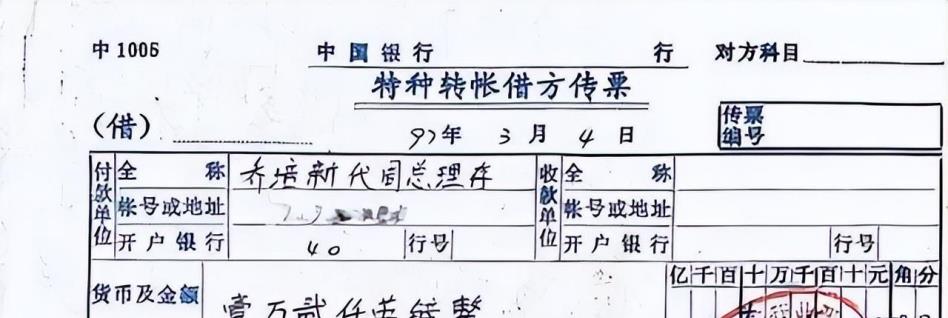 中1006 中国银行 行 对方科目
特种转帐借方传票
传票
编号
(借) 97年 3月 4日
付款单位 全称 乔培新代周总理存 收款单位 全称
帐号或地址 帐号或地址
开户银行 40 行号 开户银行 行号
亿千百十万千百十元角分
货币及金额 壹万贰仟英镑整